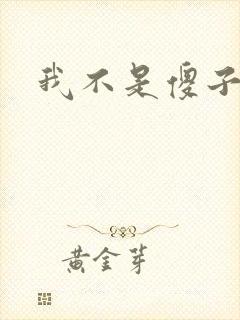 我不是傻子
黄金芽